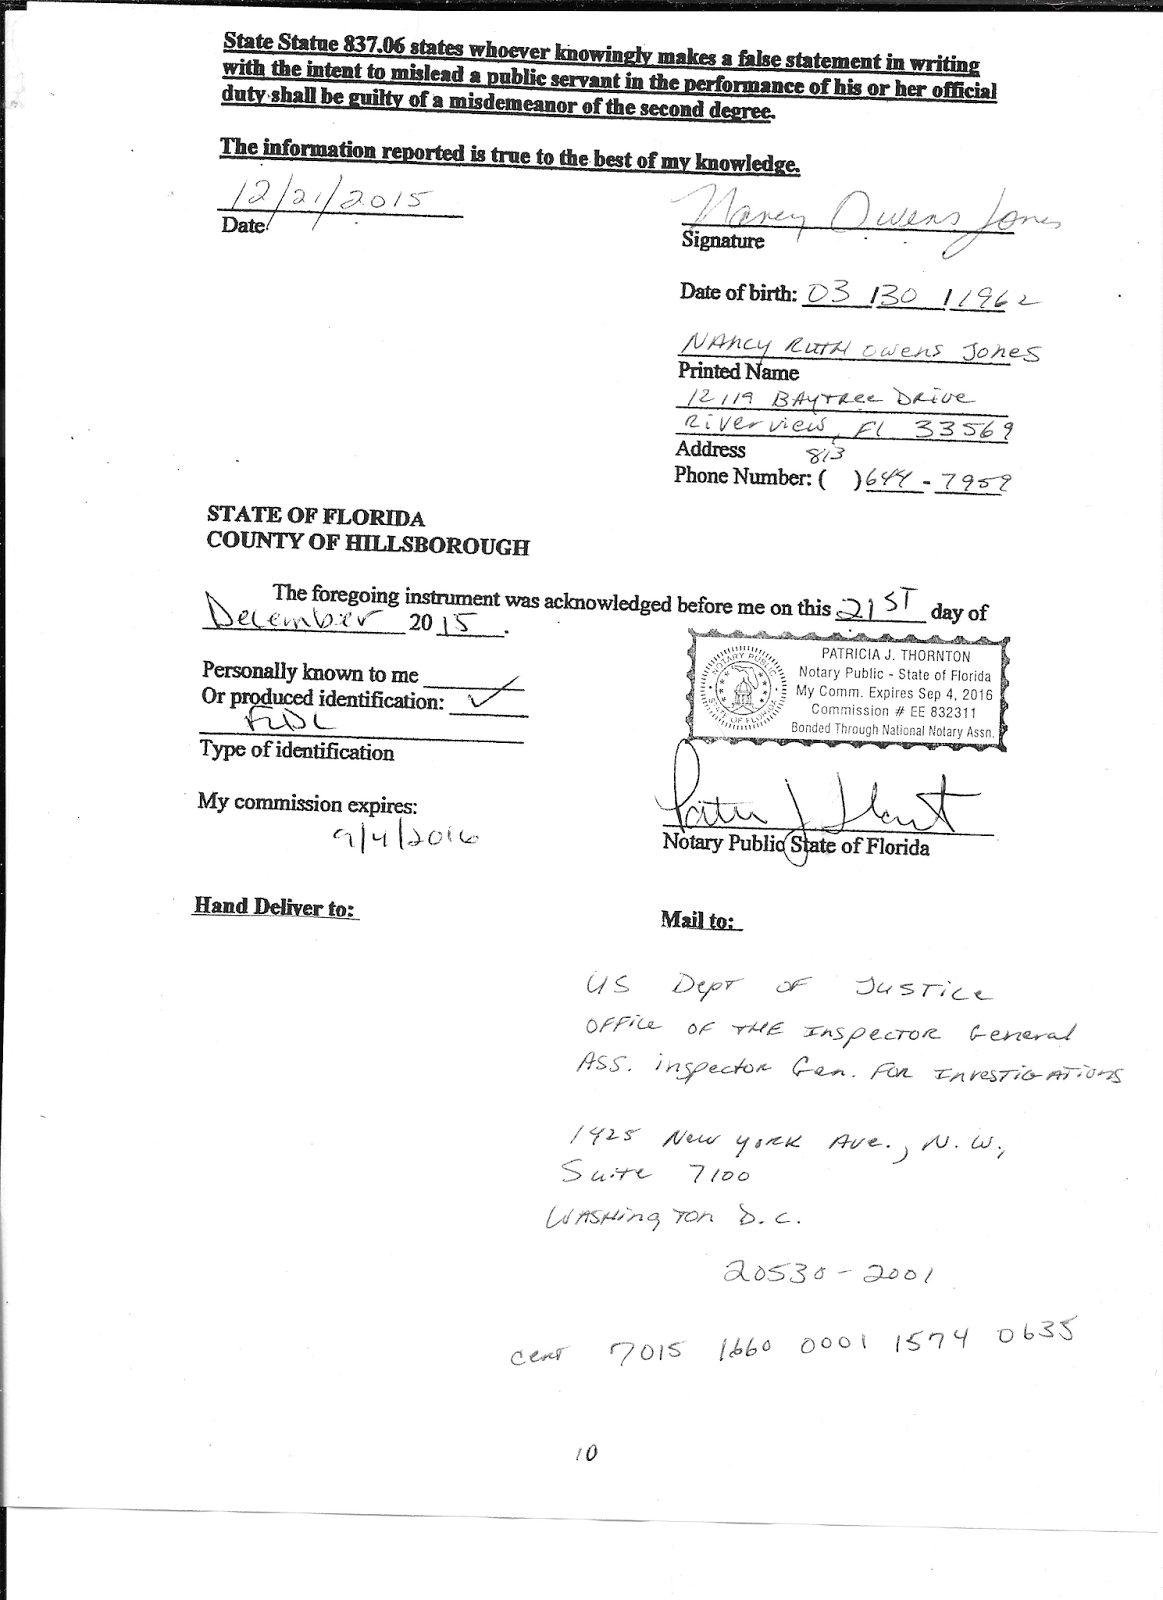 State Statue 837.06 states whoever knowingly makes a false statement in writing
with the intent to mislead a public servant in the performance of his or her official
duty shall be guilty of a misdemeanor of the second degree.
The information reported is true to the best of my knowledge.
12/21/2015
Date
Nancy Owens Jones
Signature
Date of birth: 03/30/1962
NANCY RUTH OWENS JONES
Printed Name
12119 BAYTREE DRIVE
Riverview, Fl 33569
Address
813
Phone Number: ( ) 644 - 7959
STATE OF FLORIDA
COUNTY OF HILLSBOROUGH
The foregoing instrument was acknowledged before me on this 21ST day of
December 2015.
PATRICIA J. THORNTON
Notary Public - State of Florida
My Comm. Expires Sep 4, 2016
Commission # EE 832311
Bonded Through National Notary Assn.
NOTARY PUBLIC
STATE OF FLORIDA
Personally known to me
Or produced identification: ✓
FLDL
Type of identification
My commission expires:
9/4/2016
Notary Public State of Florida
Hand Deliver to:
Mail to:
US Dept OF Justice
OFFice OF THE Inspector General
ASS. inspector Gen. FOR INVESTIGATIONS
1425 New York Ave., N.W.,
Suite 7100
WASHington D.C.
20530-2001
cert 7015 1660 0001 1574 0635
10